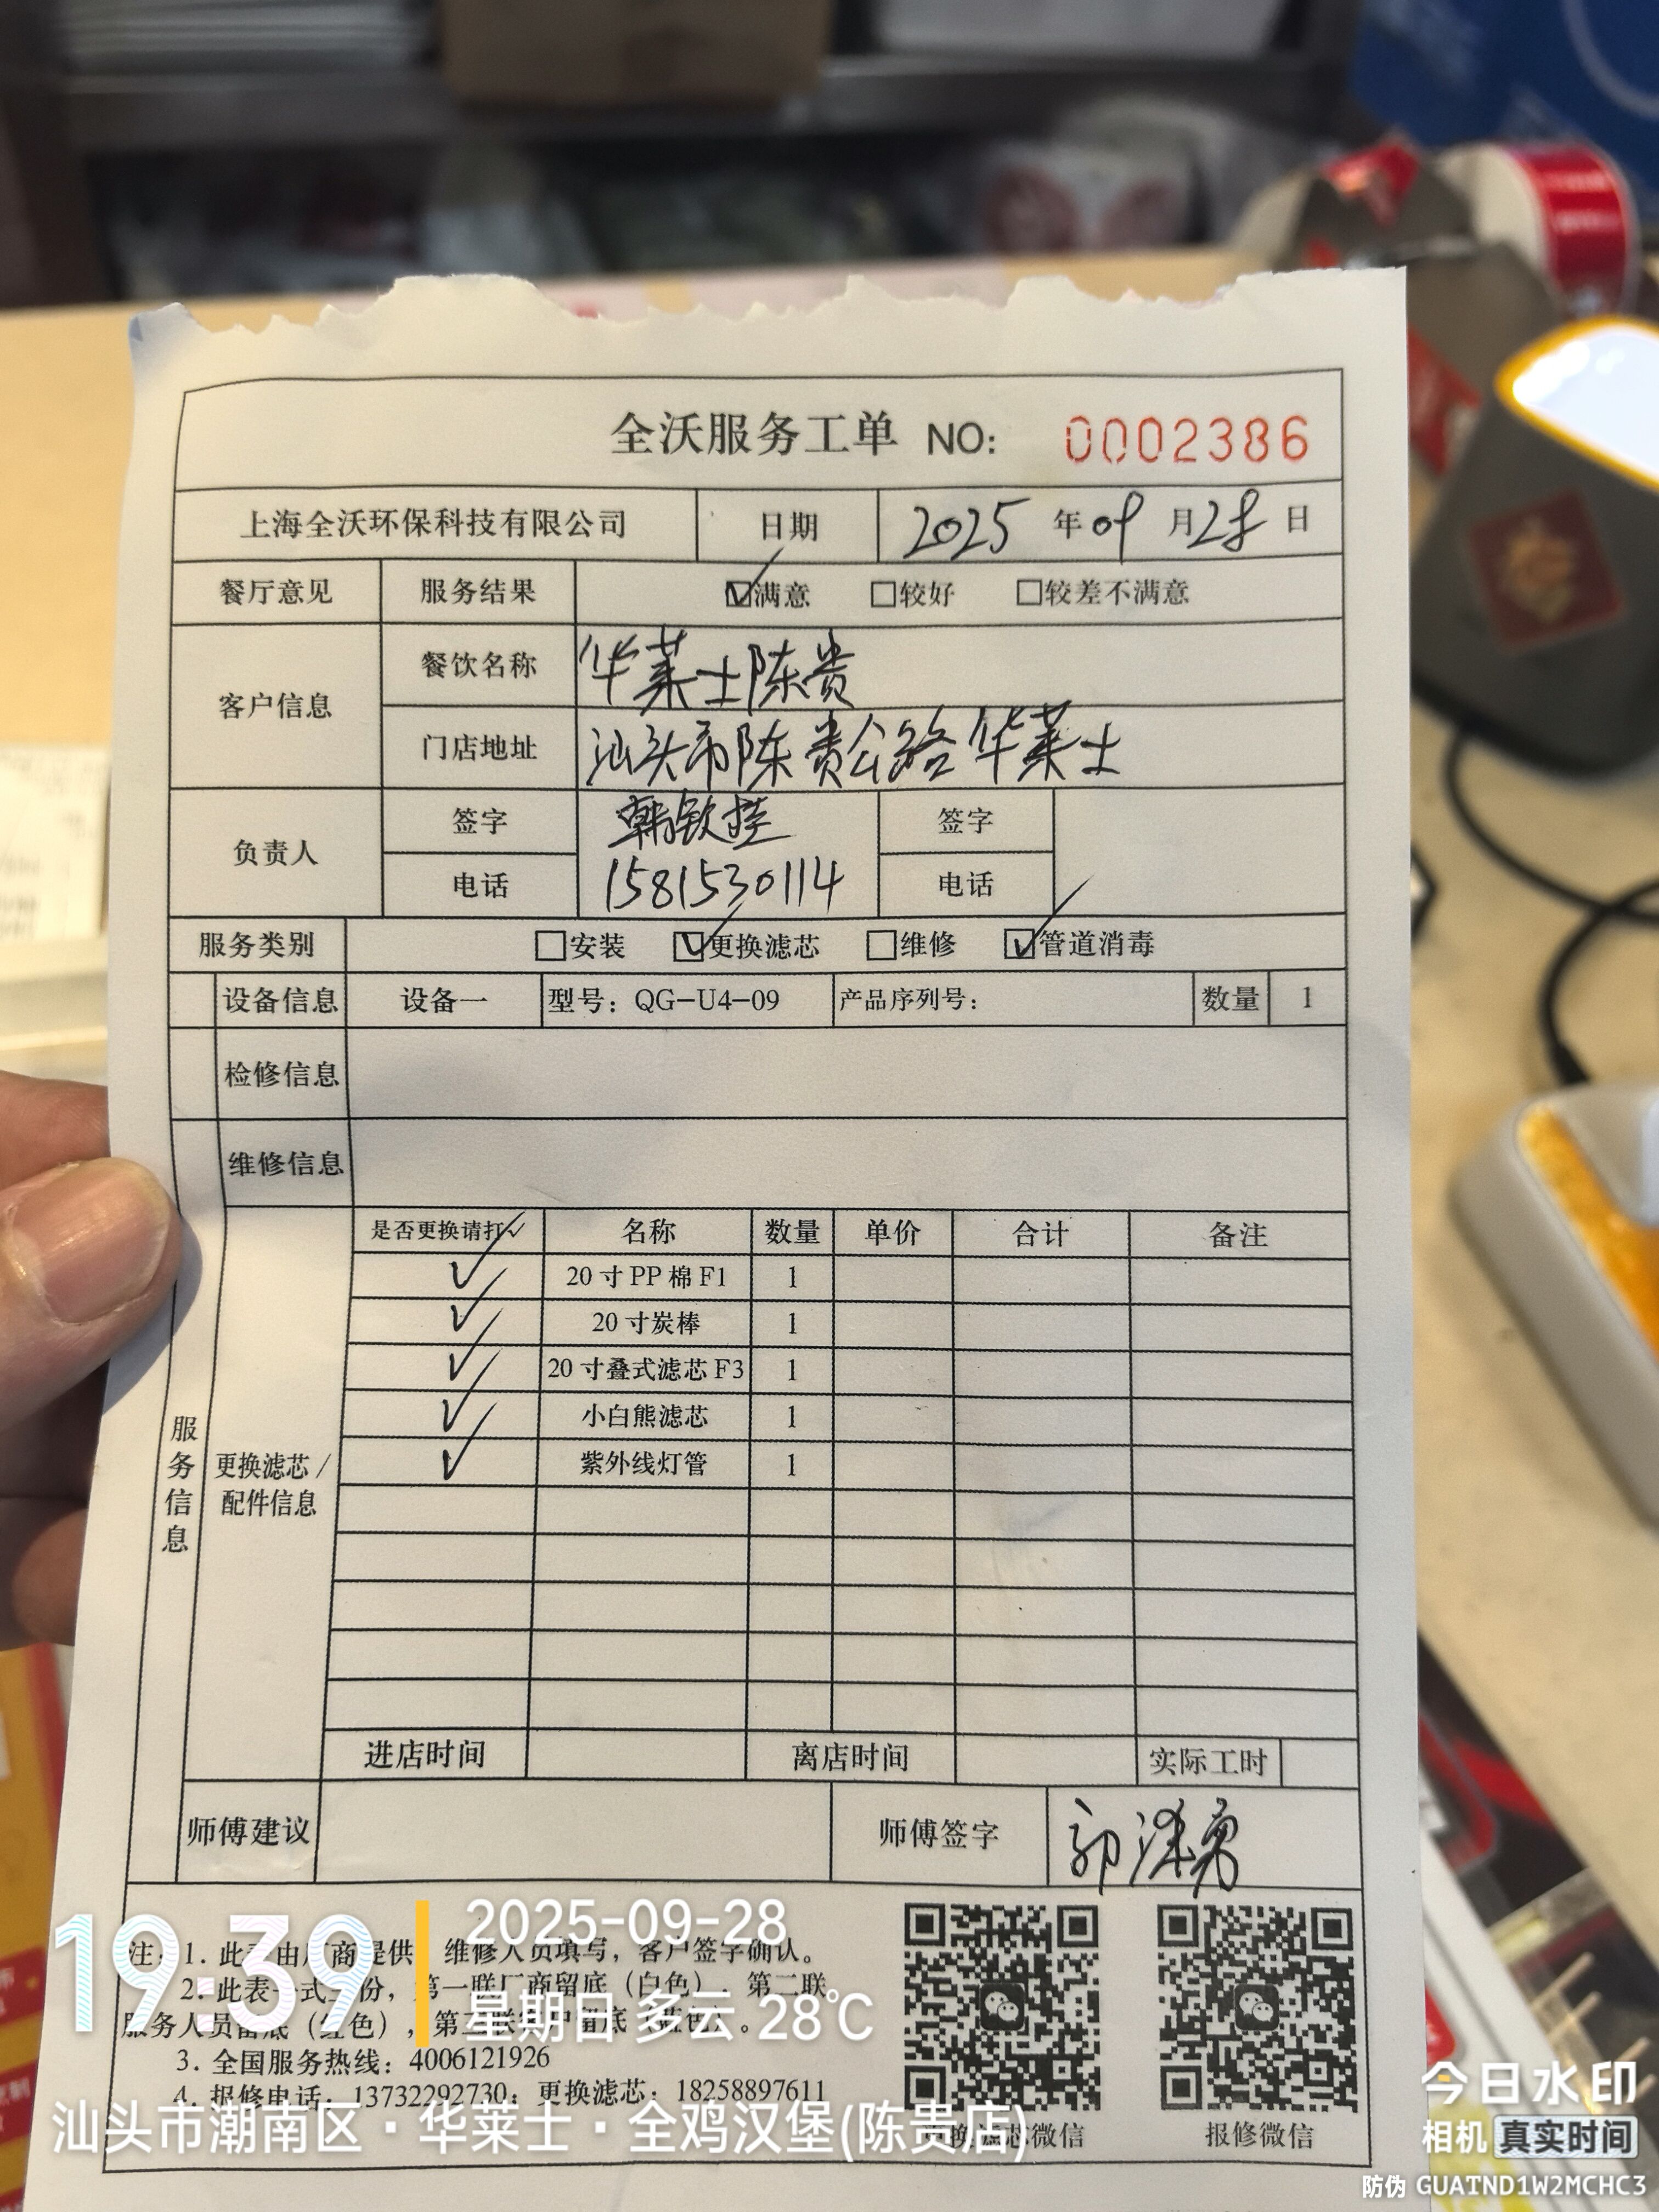 全沃服务工单 NO: 0002386
上海全沃环保科技有限公司 日期 2025 年 09 月 28 日
餐厅意见 服务结果 ☑满意 □较好 □较差不满意
客户信息 餐饮名称 华莱士陈贵
门店地址 汕头市陈贵公路华莱士
负责人 签字 韩钦 签字
电话 1581530114 电话
服务类别 □安装 ☑更换滤芯 □维修 ☑管道消毒
设备信息 设备一 型号：QG-U4-09 产品序列号： 数量 1
检修信息
维修信息
服务信息
更换滤芯/
配件信息
是否更换请打✓ 名称 数量 单价 合计 备注
✓ 20寸PP棉F1 1
✓ 20寸炭棒 1
✓ 20寸叠式滤芯F3 1
✓ 小白熊滤芯 1
✓ 紫外线灯管 1
进店时间 离店时间 实际工时
师傅建议 师傅签字 郭 勇
注：1. 此表由厂商提供 维修人员填写，客户签字确认。
2. 此表一式三份，第一联厂商留底（白色），第二联
服务人员留底（红色），第三联客户留底（蓝色）。
3. 全国服务热线：4006121926
4. 报修电话：13732292730；更换滤芯：18258897611
更换滤芯微信 报修微信
19:39
2025-09-28
星期日 多云 28℃
汕头市潮南区·华莱士·全鸡汉堡(陈贵店)
今日水印
相机 真实时间
防伪 GUATND1W2MCHC3